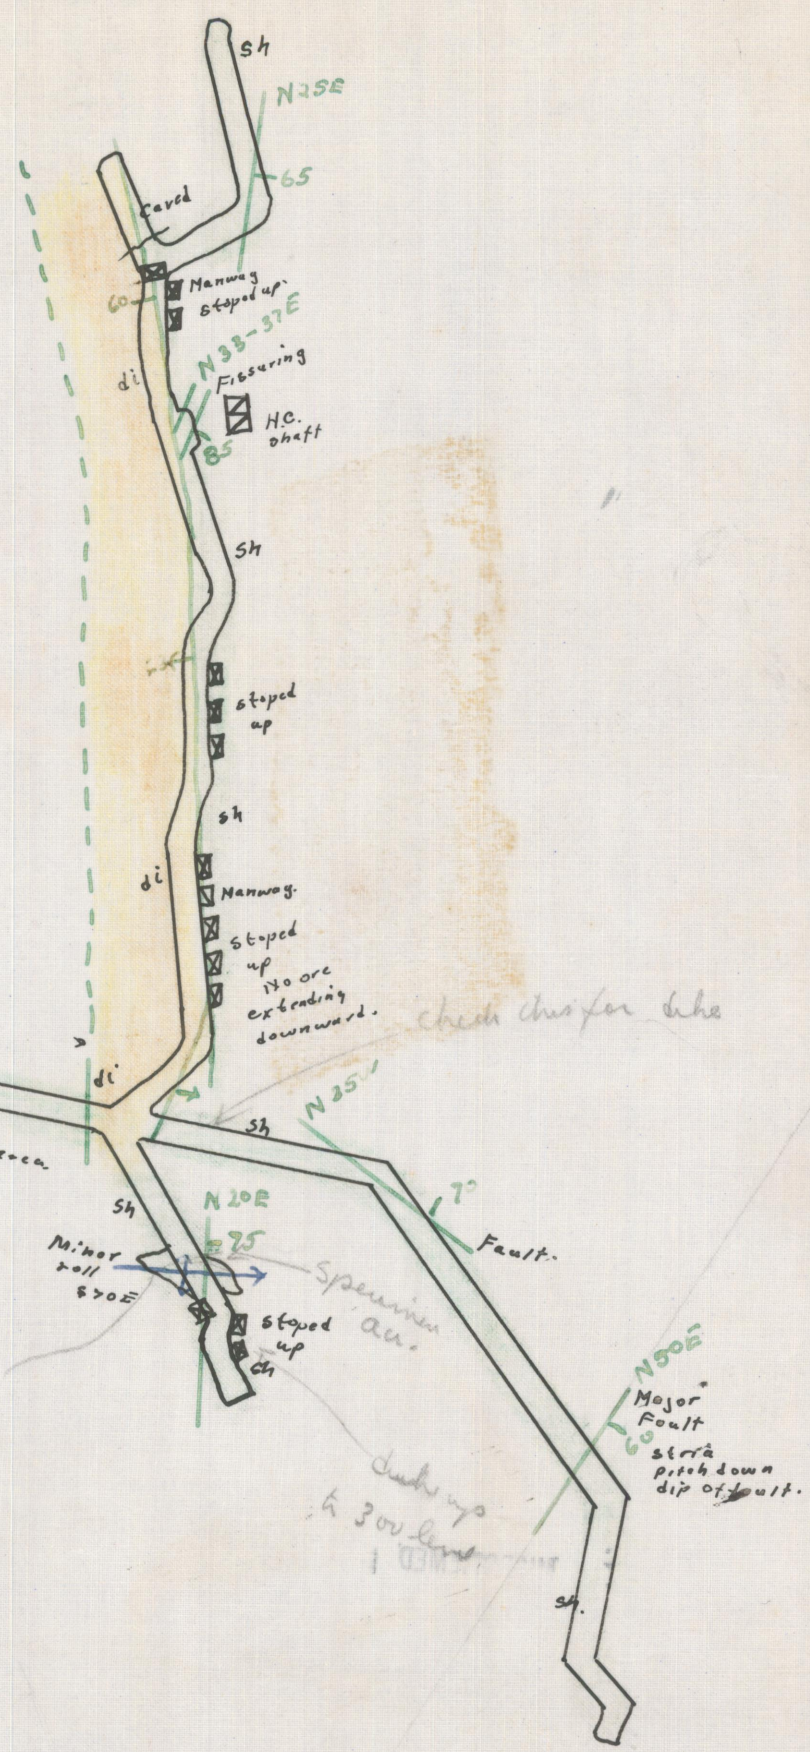 sh
N25E
65
Caved
Manway
stoped up.
60
N33-37E
Fissuring
di
H.C.
shaft
85
sh
stoped
up
sh
di
Manway.
Stoped
up
No ore
extending
downward.
check this for
di
N35W
sh
sh
N20E
75
70
Fault.
Minor
roll
S70E
Specimen
au.
stoped
up
sh
N50E
Major
Fault
60
stria
pitch down
dip of fault.
to 300 level
sh.